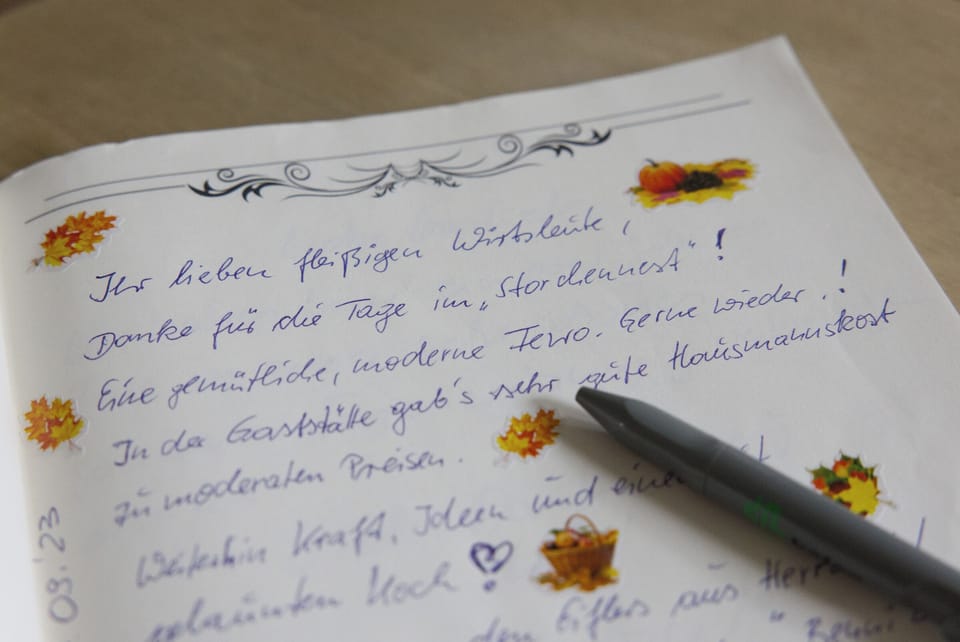 Ihr lieben fleißigen Wirtsleute,
Danke für die Tage im „Storchennest"!
Eine gemütliche, moderne Fewo. Gerne wieder!
In der Gaststätte gab's sehr gute Hausmannskost
zu moderaten Preisen.
Weiterhin Kraft, Ideen und einen
Koch
aus
09.'23